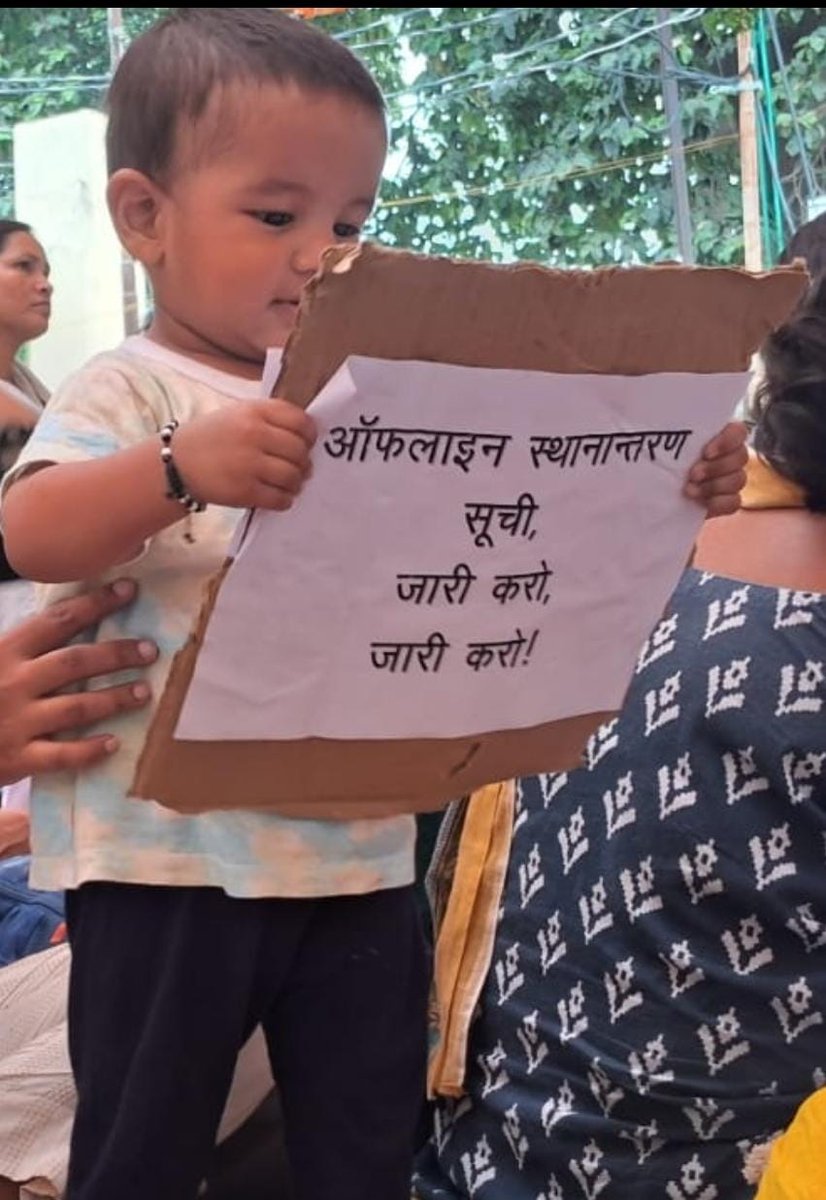 ऑफलाइन स्थानान्तरण
सूची,
जारी करो,
जारी करो!